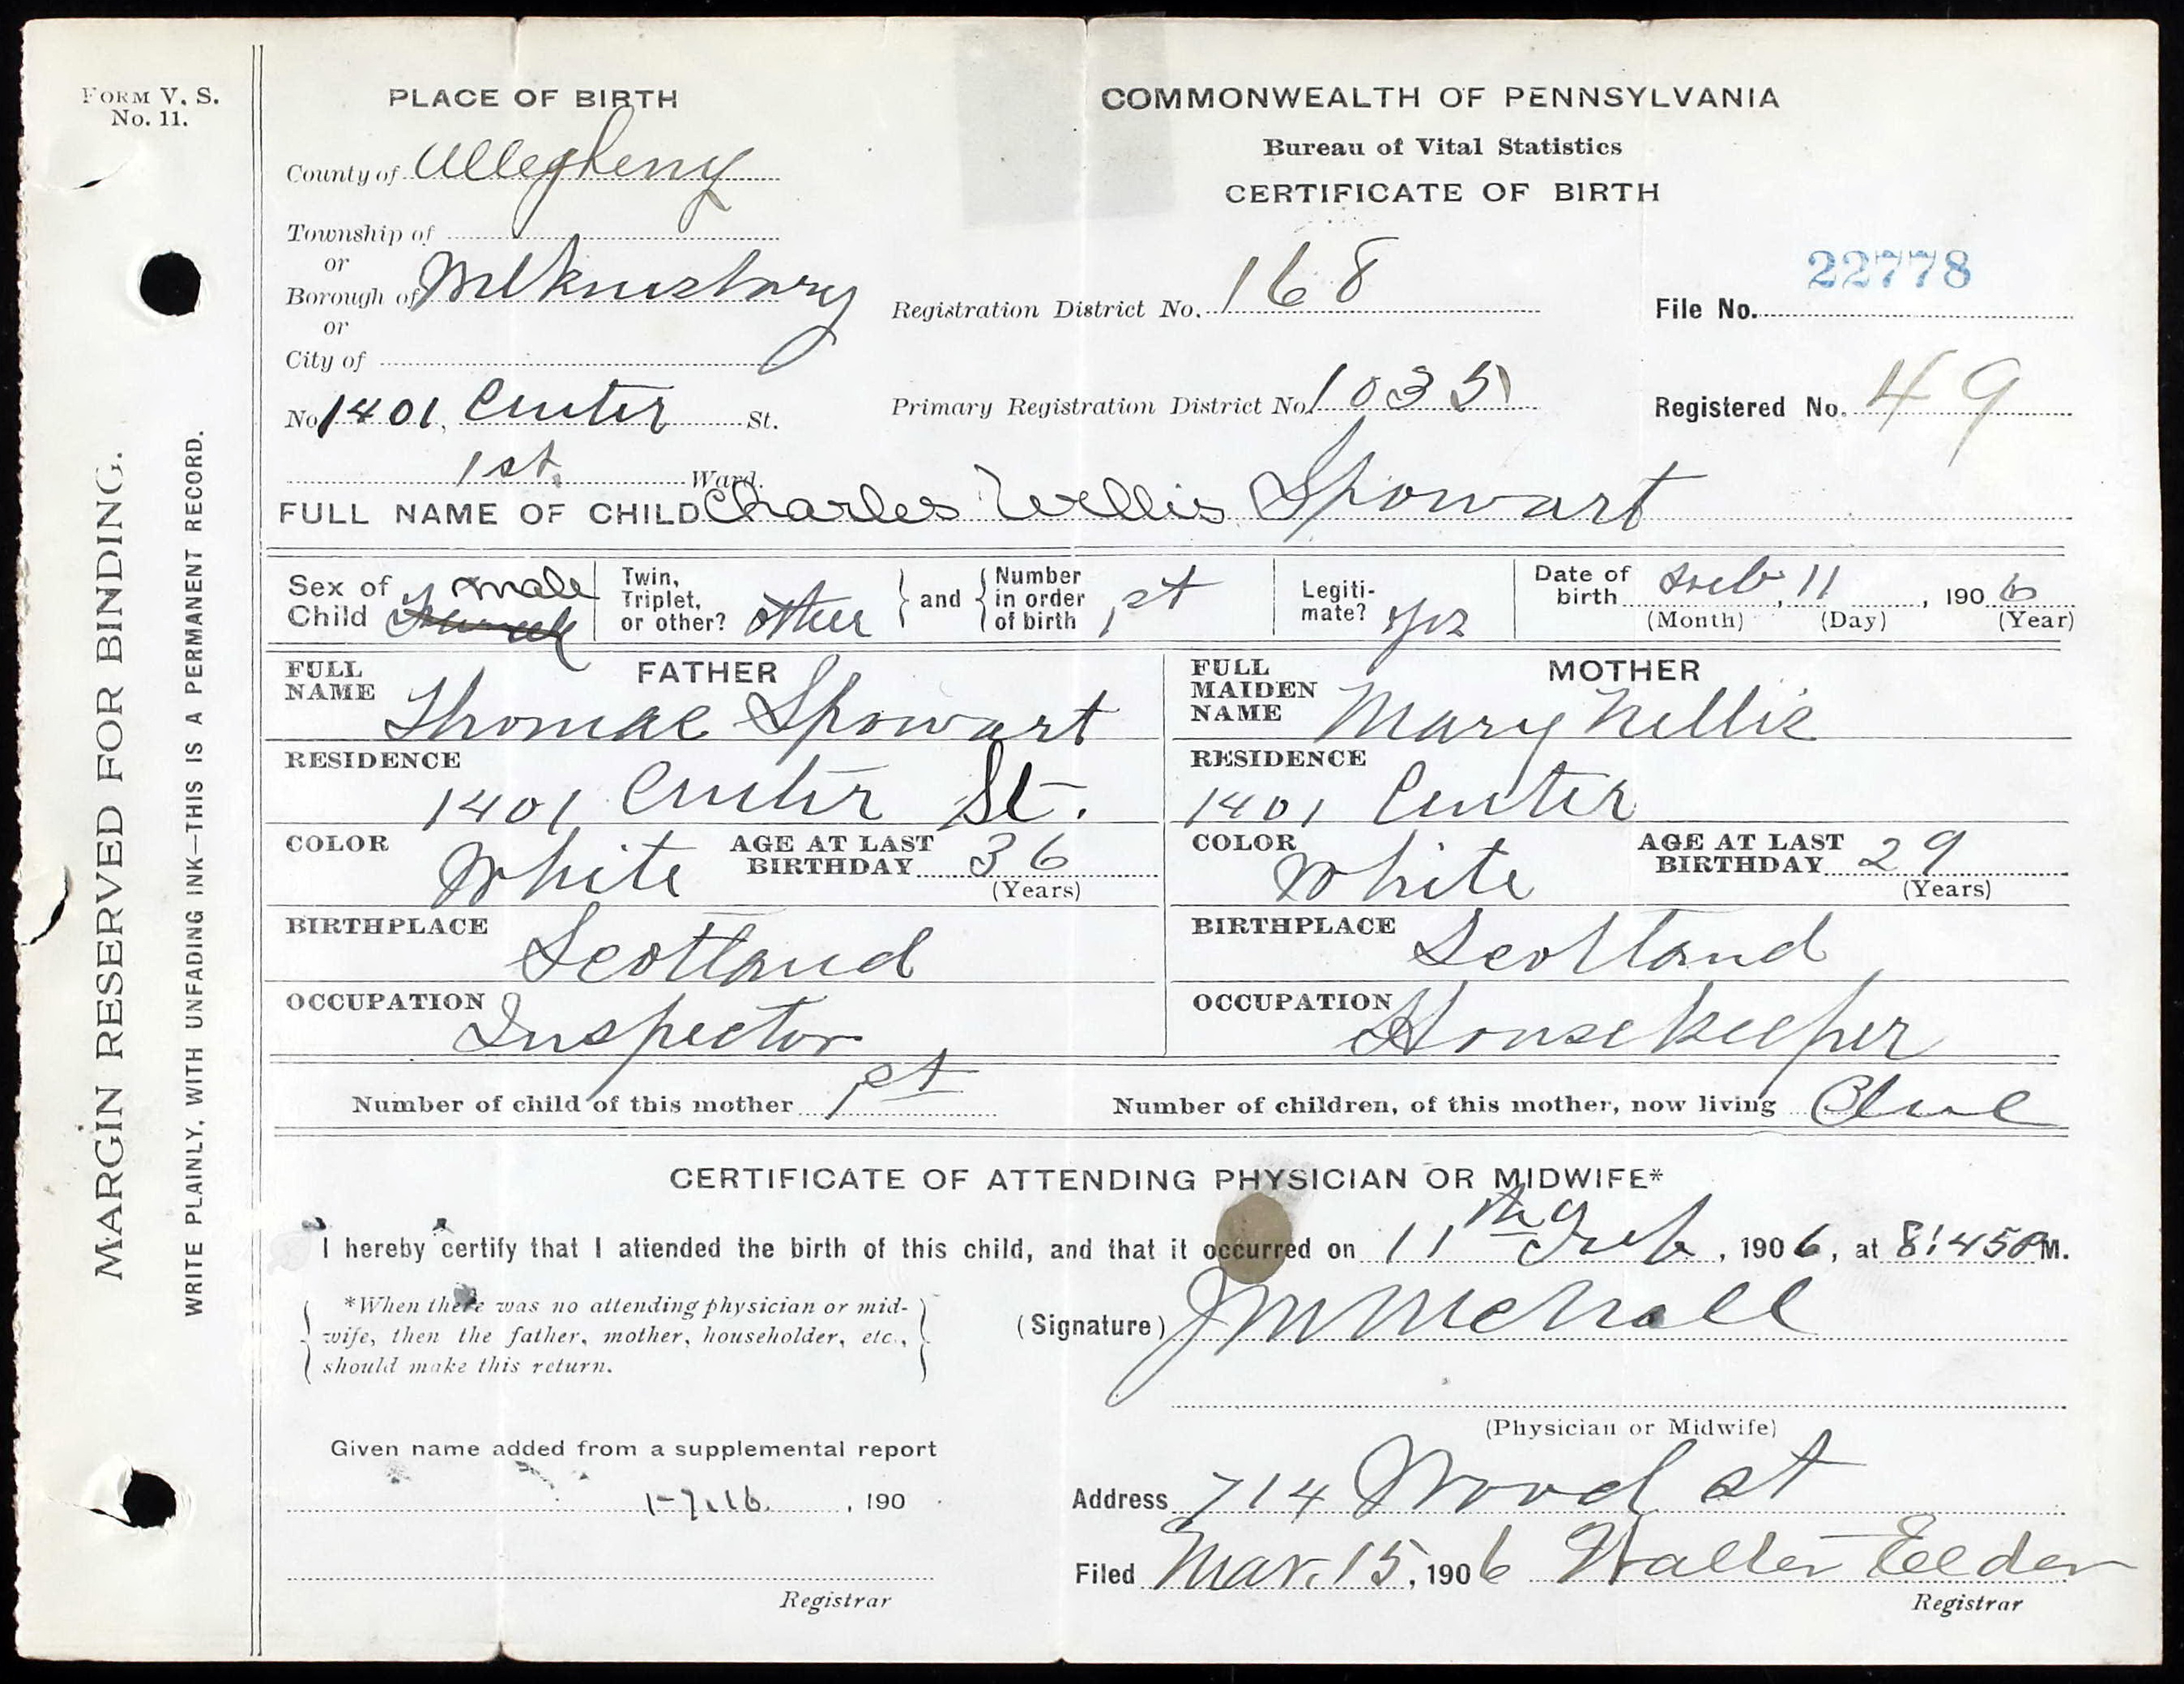 FORM V. S.
No. 11.
MARGIN RESERVED FOR BINDING.
WRITE PLAINLY, WITH UNFADING INK—THIS IS A PERMANENT RECORD.
PLACE OF BIRTH
County of Allegheny
Township of
or
Borough of Wilkinsburg
or
City of
No 1401, Center St.
1st. Ward.
COMMONWEALTH OF PENNSYLVANIA
Bureau of Vital Statistics
CERTIFICATE OF BIRTH
Registration District No. 168
File No. 22778
Primary Registration District No 1035
Registered No. 49
FULL NAME OF CHILD Charles Willis Spowart
Sex of Child male Female
Twin, Triplet, or other? other
and
Number in order of birth 1st
Legiti-mate? yes
Date of birth Feb. 11, 1906
(Month) (Day) (Year)
FATHER
FULL NAME Thomas Spowart
RESIDENCE
1401 Center St.
COLOR White
AGE AT LAST BIRTHDAY 36
(Years)
BIRTHPLACE
Scotland
OCCUPATION
Inspector
MOTHER
FULL MAIDEN NAME Mary Nellis
RESIDENCE
1401 Center
COLOR White
AGE AT LAST BIRTHDAY 29
(Years)
BIRTHPLACE
Scotland
OCCUPATION
Housekeeper
Number of child of this mother 1st
Number of children, of this mother, now living
CERTIFICATE OF ATTENDING PHYSICIAN OR MIDWIFE*
I hereby certify that I attended the birth of this child, and that it occurred on 11th Feb, 1906, at 8:45 PM.
*When there was no attending physician or mid-
wife, then the father, mother, householder, etc.,
should make this return.
(Signature) J M McNall
(Physician or Midwife)
Given name added from a supplemental report
1-7.16. , 190 .
Registrar
Address 714 Wood st
Filed Mar. 15, 1906 Walter Elder
Registrar